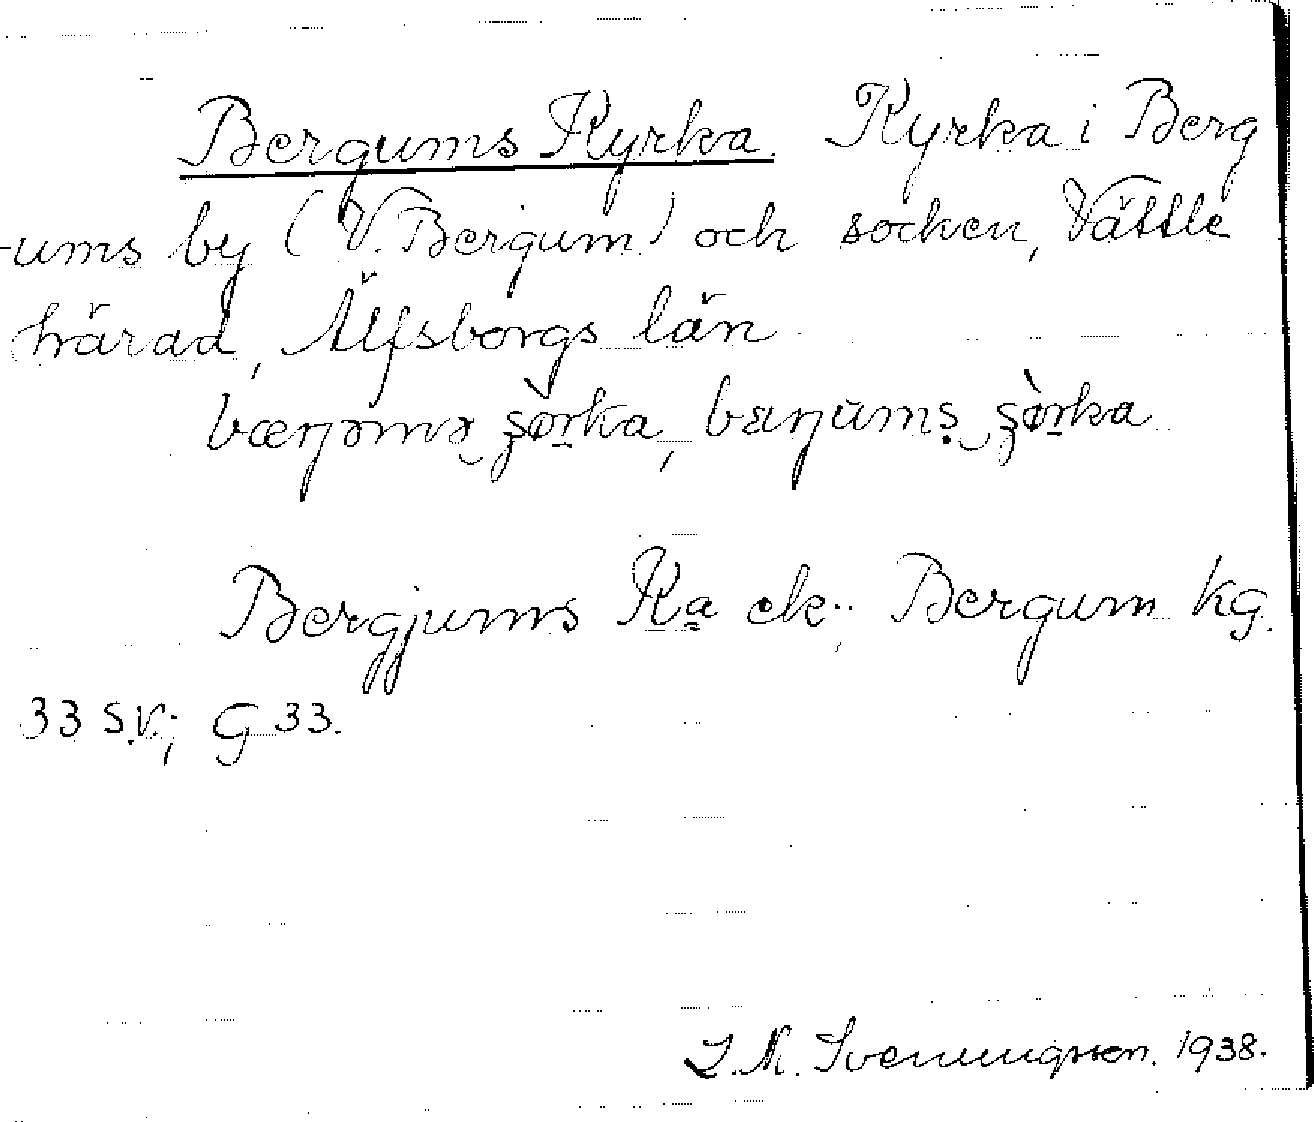 Bergums Kyrka. Kyrka i Berg
-ums by (V. Bergum) och socken, Vättle
härad, Älfsborgs län
bærŋəmə ʂørka, bɛrŋŭmʂ ʂørka
Bergjums Ka ek.; Bergum kg.
33 S.V.; G 33.
L. M. Svenungsson. 1938.